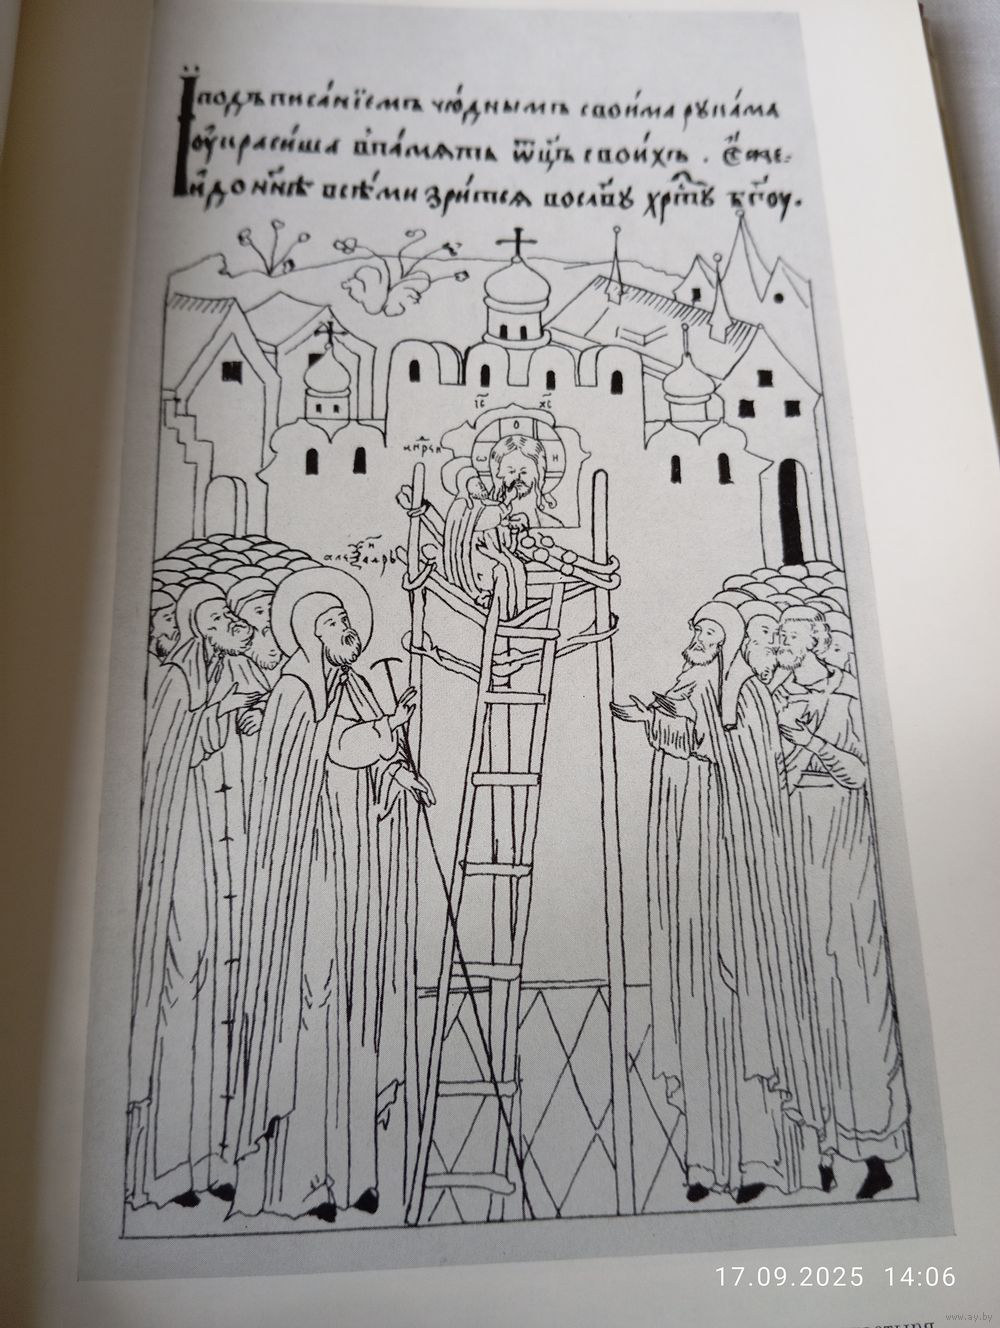 и подъписанїемъ чюднымъ своима рукама
оукрасиша въ память ѿцъ своихъ. Еже
и донн҃ѣ всѣми зрится во славу хрⷭ҇ту бг҃оу.
і҃с х҃с
ѡ о н
андрѣи
алеѯандръ
17.09.2025 14:06
www.ay.by